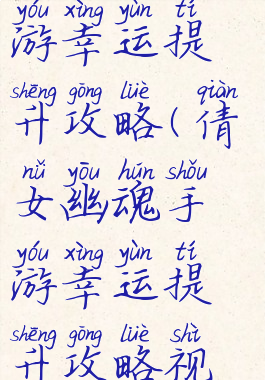 yóu xìng yùn tí
游幸运提
shēng gōng lüè qiàn
升攻略(倩
nǚ yōu hún shǒu
女幽魂手
yóu xìng yùn tí
游幸运提
shēng gōng lüè shì
升攻略视